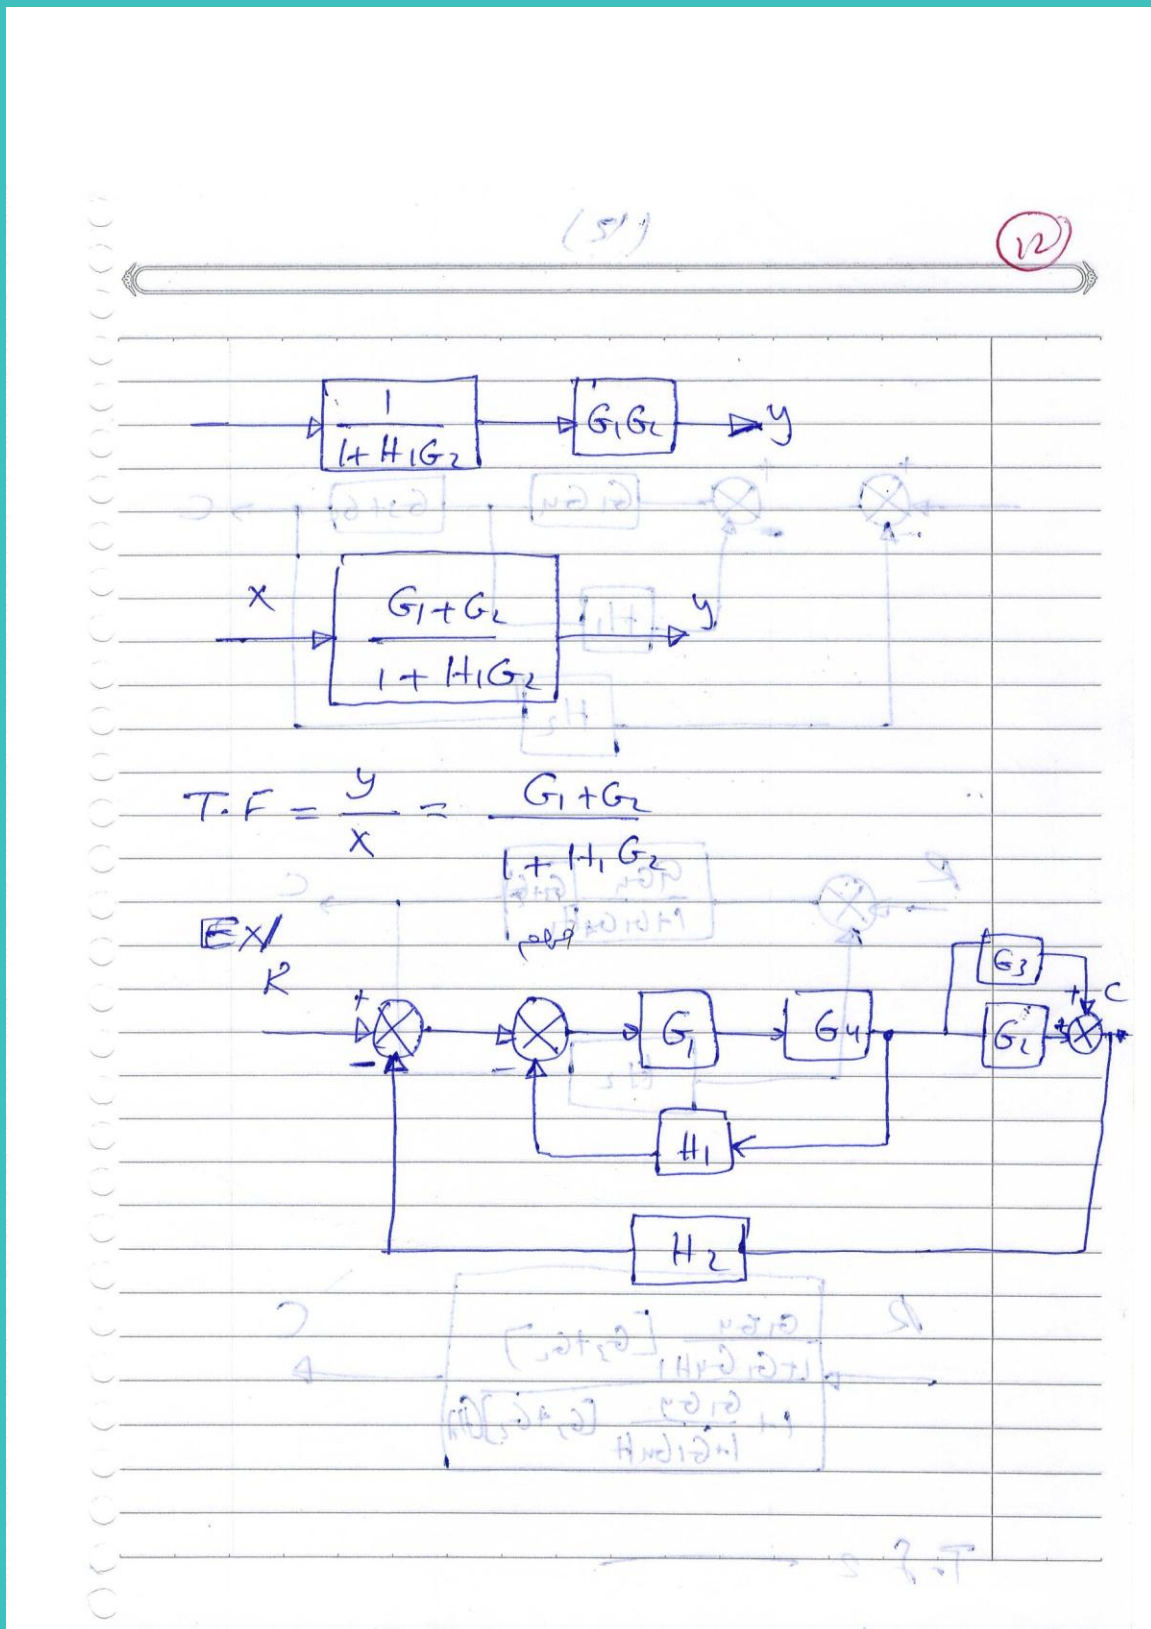 12
1
1 + H1G2
G1G2
y
x
G1 + G2
1 + H1G2
y
T.F = y/x = G1 + G2 / 1 + H1 G2
Ex/
R
+
-
-
G1
G4
G3
G2
+
+
C
H1
H2